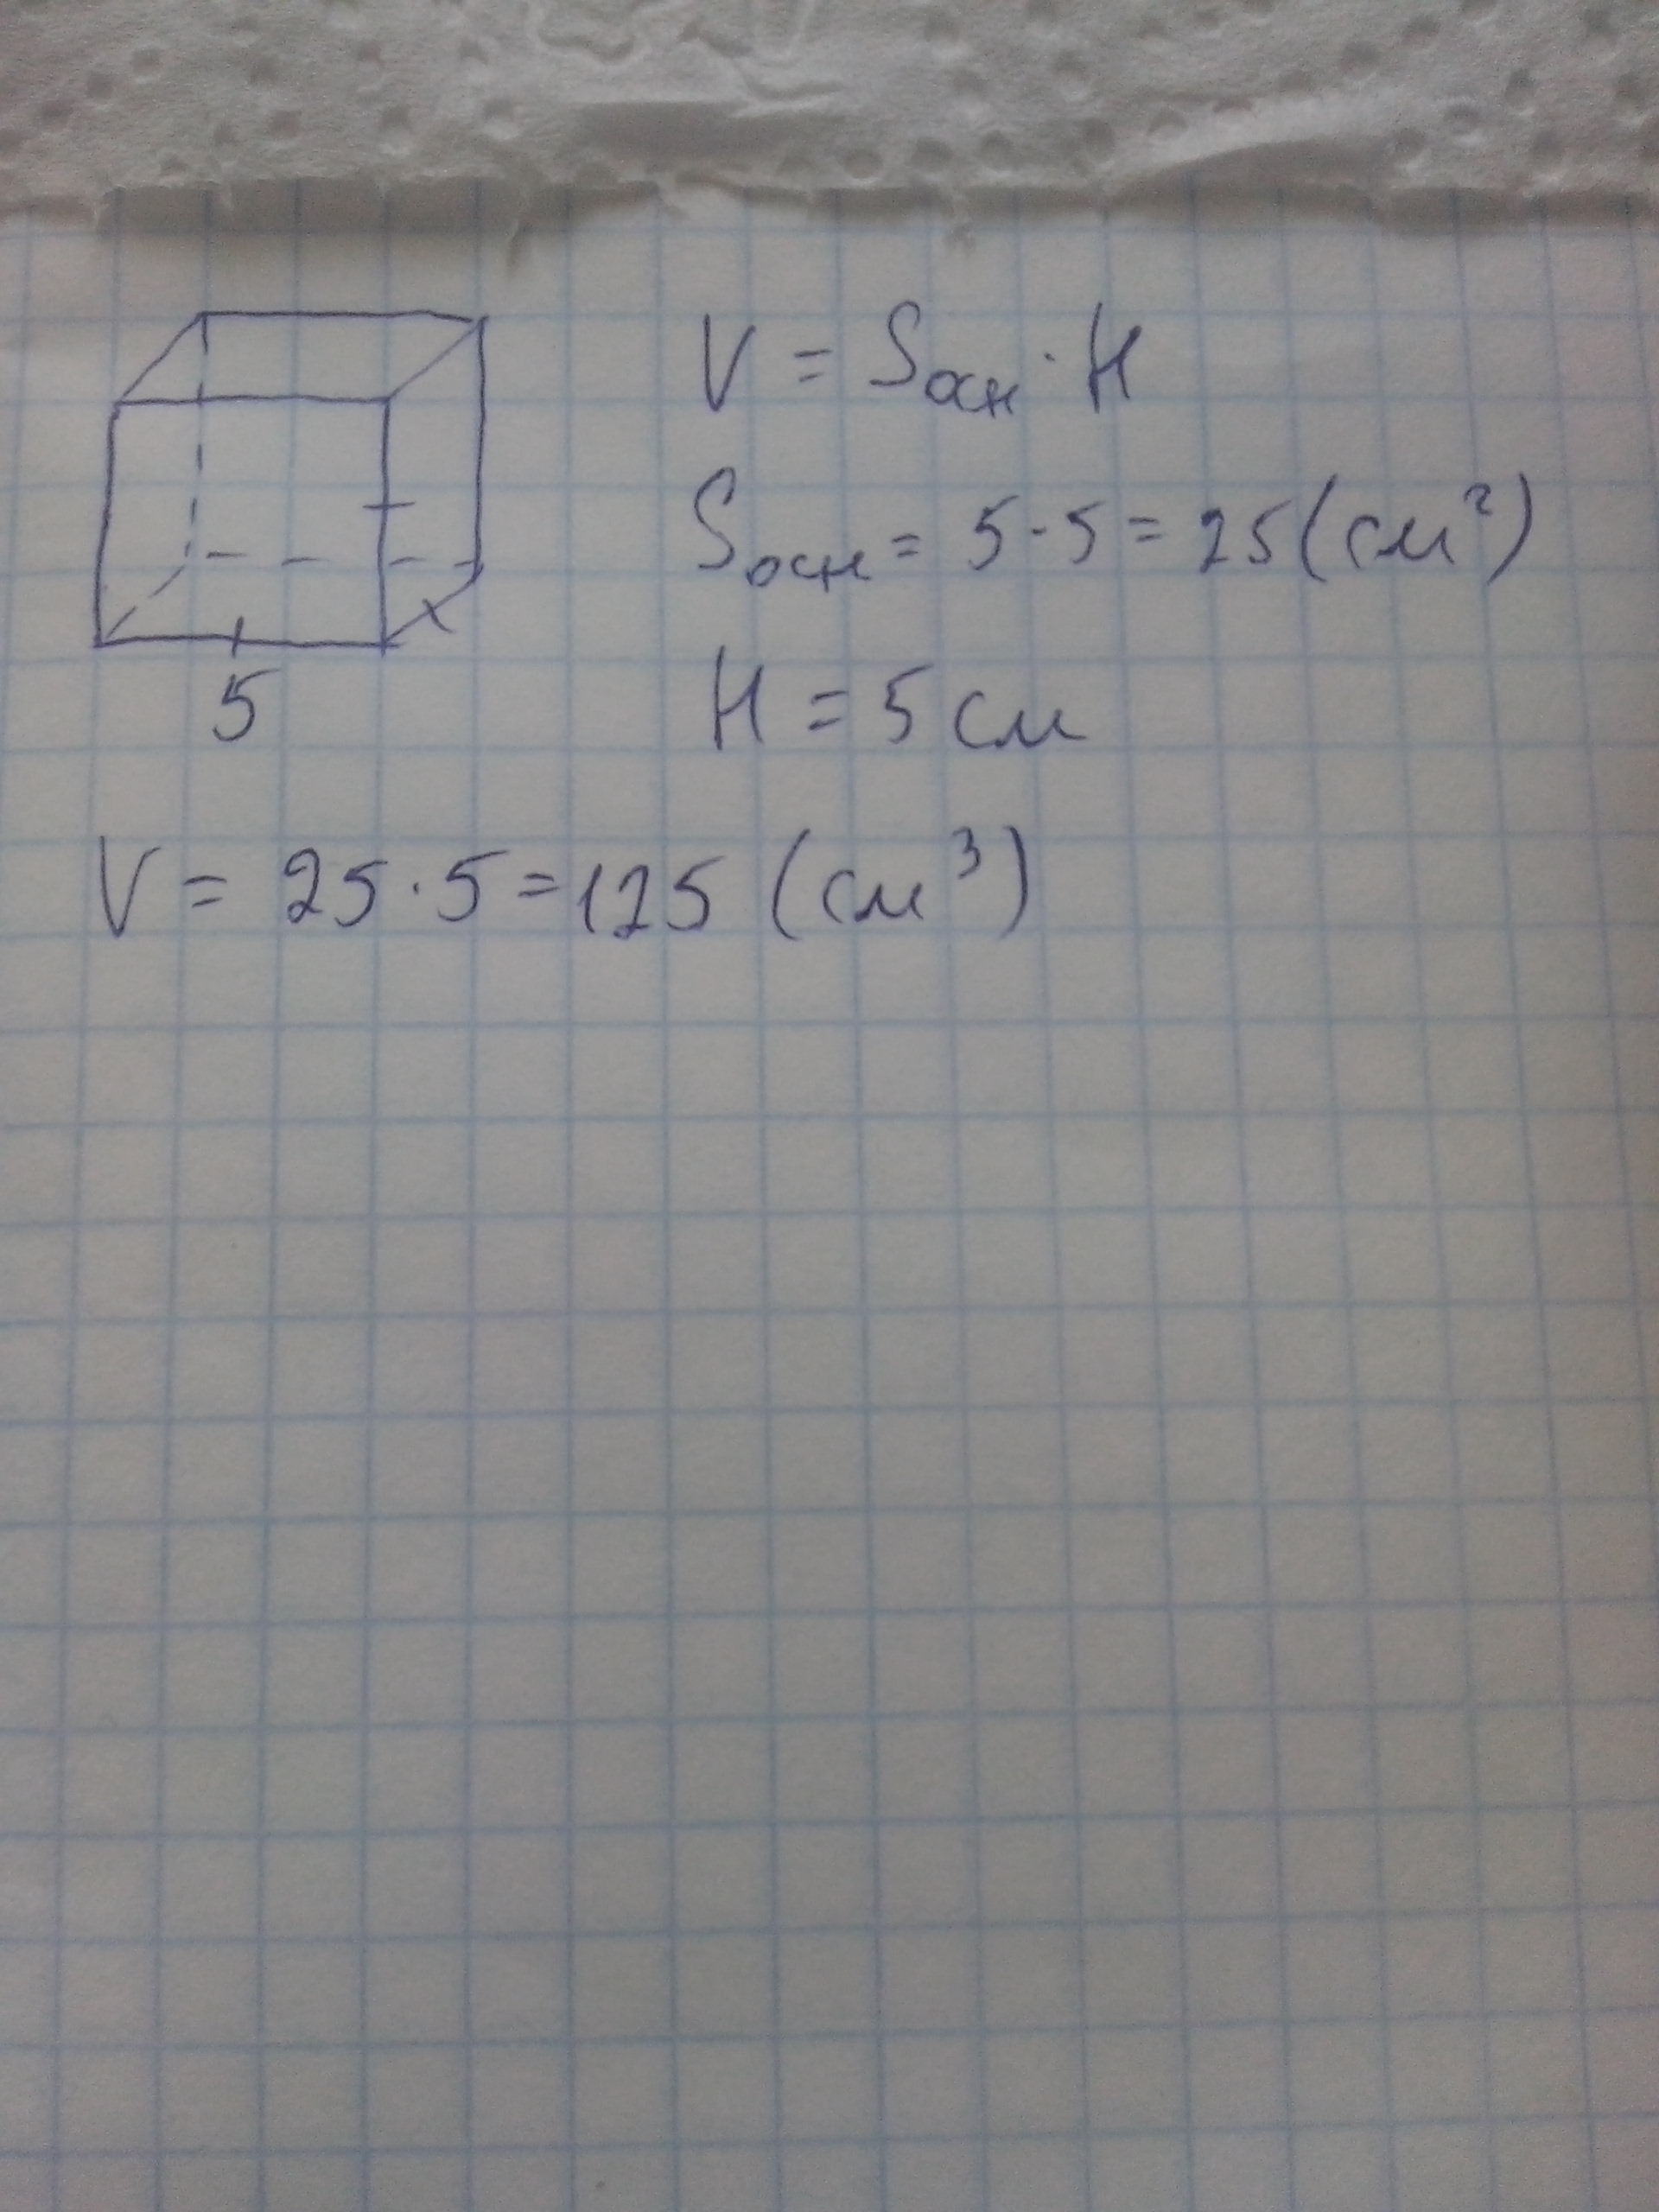 V = Sосн · H
Sосн = 5 · 5 = 25 (см²)
5
H = 5 см
V = 25 · 5 = 125 (см³)